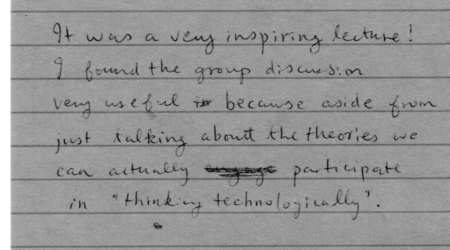 It was a very inspiring lecture!
I found the group discussion
very useful because aside from
just talking about the theories we
can actually engage participate
in "thinking technologically".